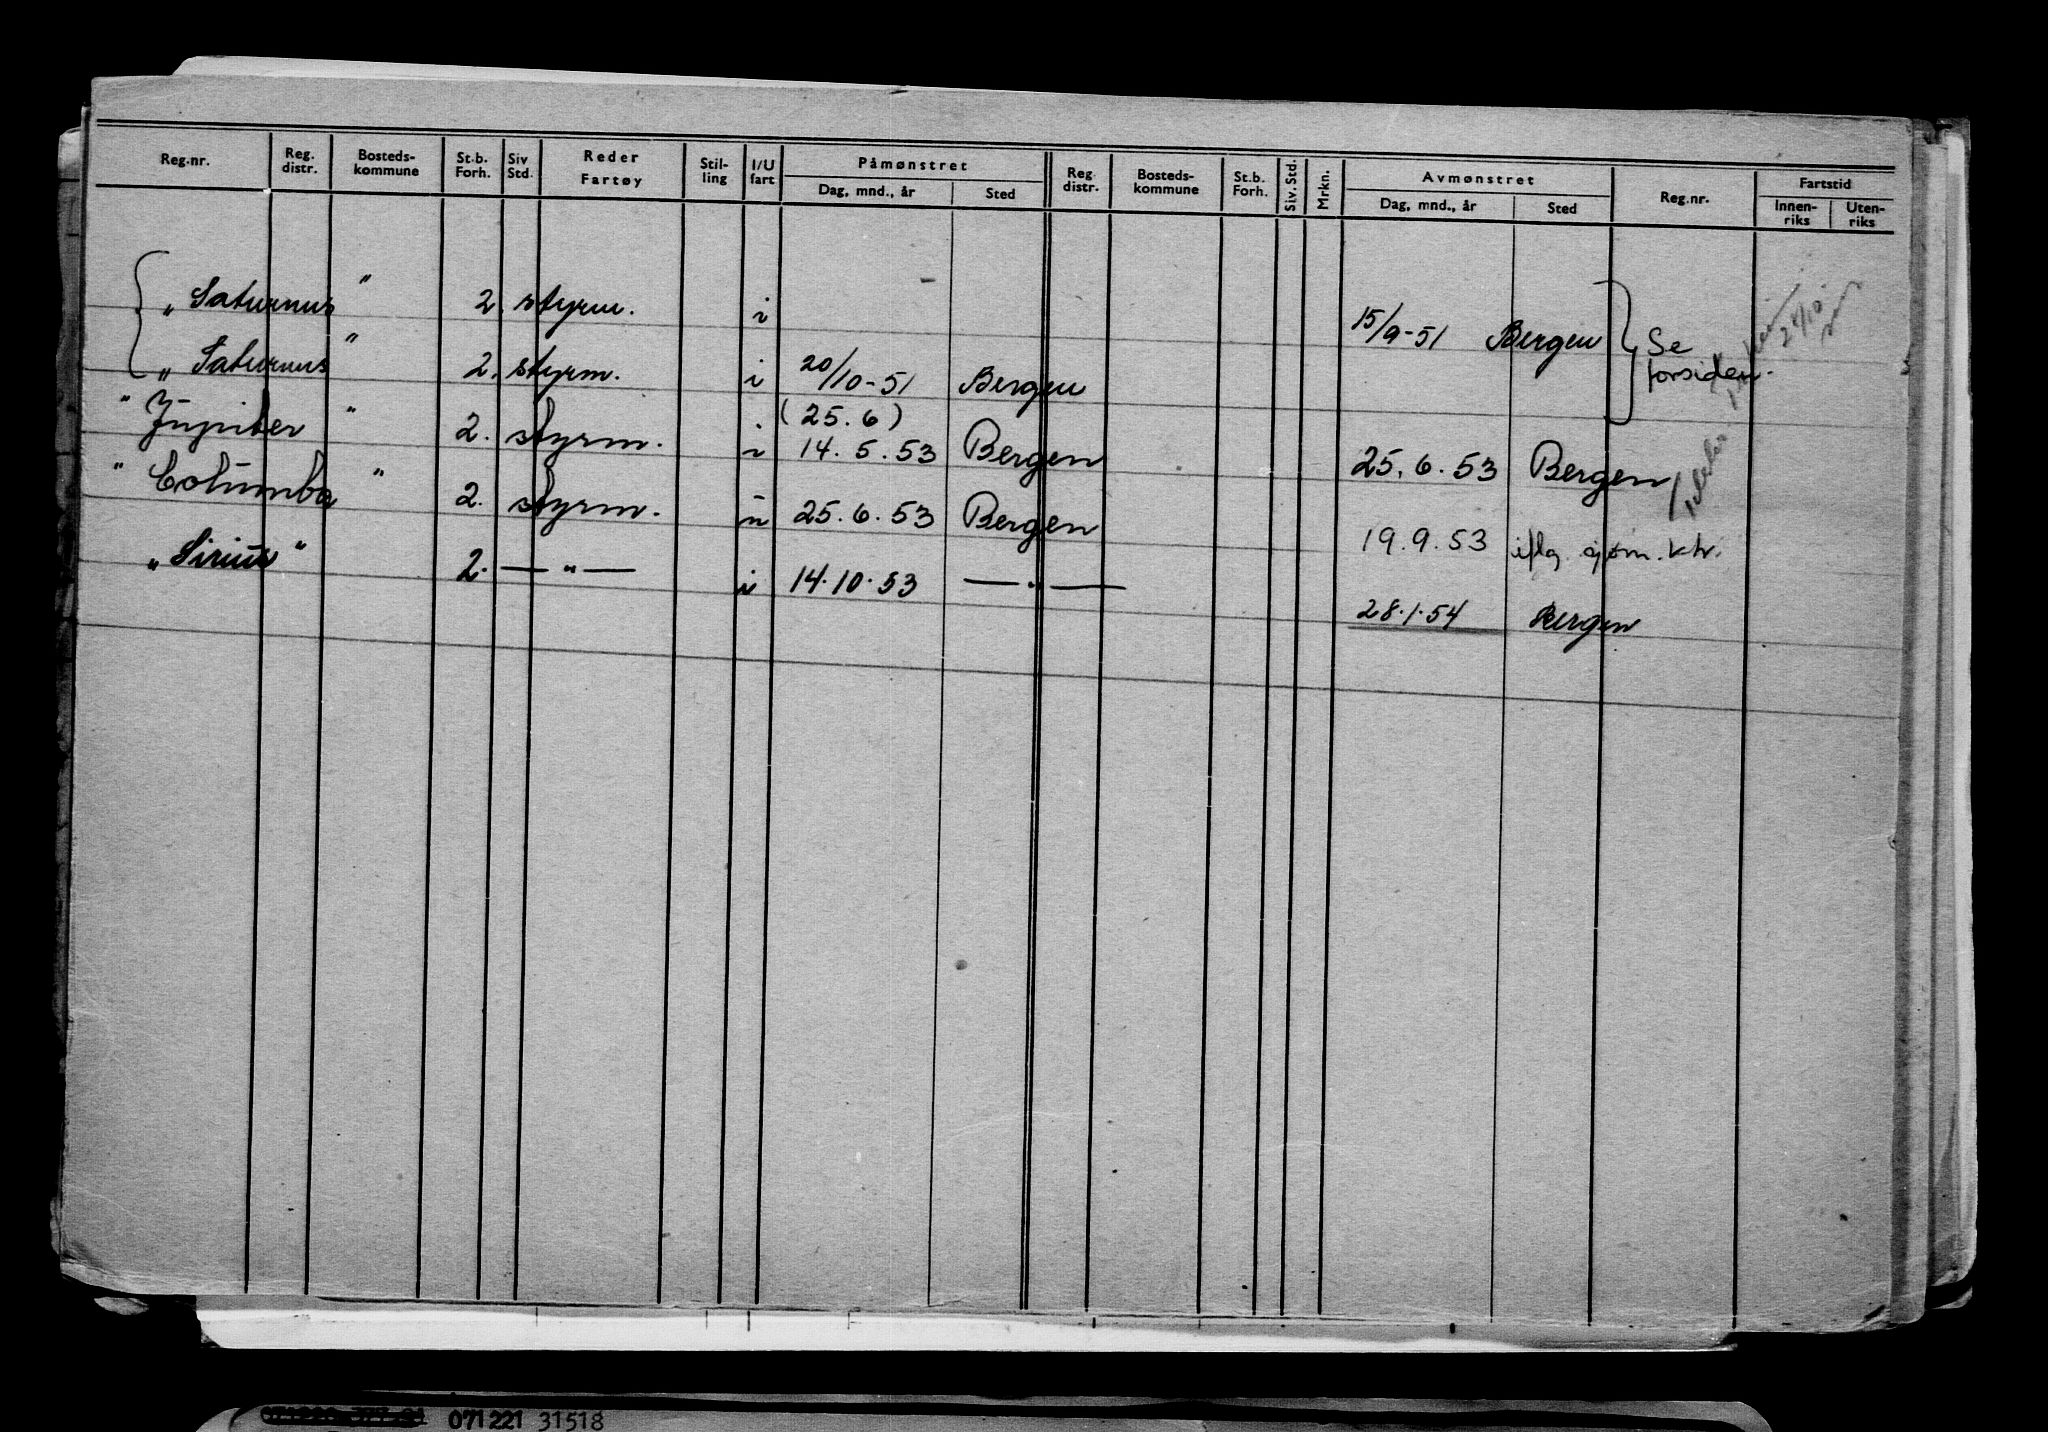 Reg.nr. Reg. distr. Bosteds-kommune St.b. Forh. Siv Std. Reder Fartøy Stil-ling I/U fart Påmønstret Dag, mnd., år Sted Reg distr. Bosteds-kommune St.b. Forh. Siv. Std. Mrkn. Avmønstret Dag, mnd., år Sted Reg.nr. Fartstid Innen-riks Uten-riks
„Saturnus" 2. styrm. i 15/9-51 Bergen Se
„Saturnus" 2. styrm. i 20/10-51 Bergen forsiden.
(25.6)
"Jupiter" 2. styrm. i 14.5.53 Bergen 25.6.53 Bergen
"Columba" 2. styrm. u 25.6.53 Bergen 19.9.53 iflg. sjøm. ktr.
„Sirius" 2. — " — i 14.10.53 — " — 28.1.54 Bergen
071221 31518